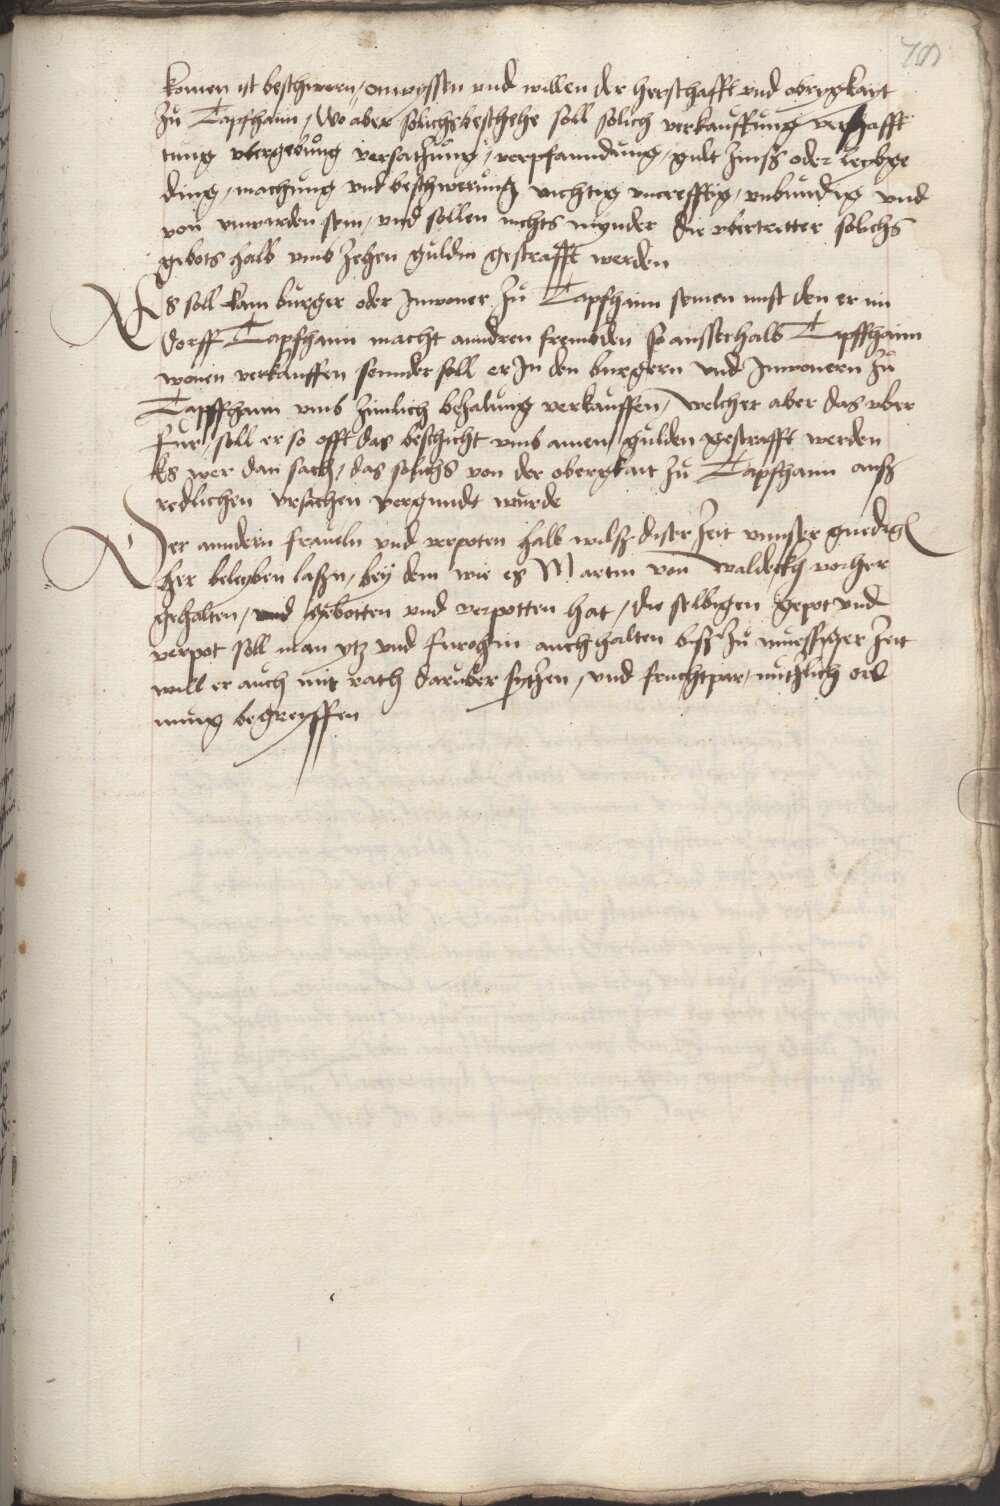 komen ist beschweren / on wyssen und willen der herschafft vnd obrygkayt
zu Tapfhaim / Wo aber solichs beschehe soll solich verkauffung verhafft
tung vbergebung versatzung / verpfanndung / gult zinss oder leybge
ding / machung vnd beschwerung nichtig vncrefftig / vnbundig vnd
von vnwirden sein / vnd sollen nichts mynder die vbertretter solichs
gebots halb vmb zehen guldin gestrafft werden
Es soll kain burger oder Inwoner zu Tapfhaim seinen mist den er im
dorff Tapfhaim macht anndren frembden so ausserhalb Tapffhaim
wonen verkauffen sunnder soll er In den burgern vnd Inwonern zu
Tapffhaim vmb zimlich bezalung verkauffen / welcher aber das vber
fur / soll er so offt das beschicht vmb ainen gulden gestrafft werden
Es wer dan sach / das solichs von der oberkait zu Tapfhaim auss
redlichen vrsachen vergundt wurde
Der anndern fräueln vnd verpoten halb will diser zeit vnnser gnedig
her beleyben lassen / bey dem wie es Martin von Waldeckh vorher
gehalten / gebotten vnd verpotten hat / die selbigen gepot vnd
verpot soll man ytz vnd furohin auch halten biss zu muessiger zeit
will er auch mit rath daruber sytzen / vnd fruchtpar / nutzlich ord
nung begreyffen